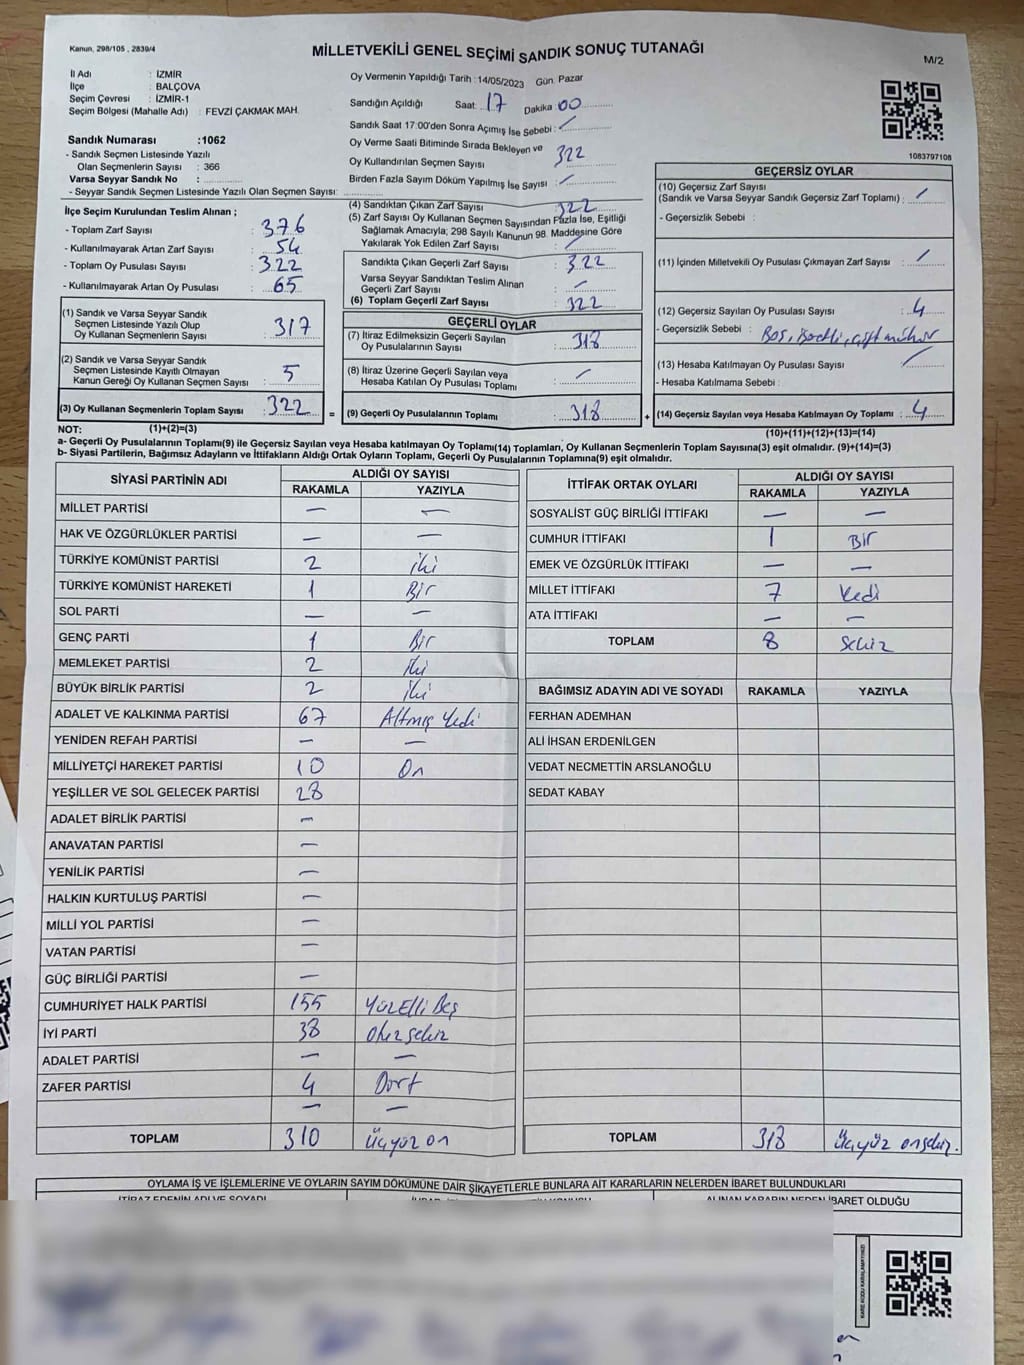 Kanun, 298/105 , 2839/4
MİLLETVEKİLİ GENEL SEÇİMİ SANDIK SONUÇ TUTANAĞI
M/2
İl Adı : İZMİR
İlçe : BALÇOVA
Seçim Çevresi : İZMİR-1
Seçim Bölgesi (Mahalle Adı) : FEVZİ ÇAKMAK MAH.
Sandık Numarası :1062
- Sandık Seçmen Listesinde Yazılı
Olan Seçmenlerin Sayısı : 366
Varsa Seyyar Sandık No :
- Seyyar Sandık Seçmen Listesinde Yazılı Olan Seçmen Sayısı:
Oy Vermenin Yapıldığı Tarih :14/05/2023 Gün. Pazar
Sandığın Açıldığı Saat: 17 Dakika 00
Sandık Saat 17:00'den Sonra Açımış İse Sebebi : /
Oy Verme Saati Bitiminde Sırada Bekleyen ve
Oy Kullandırılan Seçmen Sayısı 322
Birden Fazla Sayım Döküm Yapılmış İse Sayısı : /
1083797108
İlçe Seçim Kurulundan Teslim Alınan ;
- Toplam Zarf Sayısı : 376
- Kullanılmayarak Artan Zarf Sayısı : 54
- Toplam Oy Pusulası Sayısı : 322
- Kullanılmayarak Artan Oy Pusulası : 65
(1) Sandık ve Varsa Seyyar Sandık
Seçmen Listesinde Yazılı Olup
Oy Kullanan Seçmenlerin Sayısı : 317
(2) Sandık ve Varsa Seyyar Sandık
Seçmen Listesinde Kayıtlı Olmayan
Kanun Gereği Oy Kullanan Seçmen Sayısı : 5
(3) Oy Kullanan Seçmenlerin Toplam Sayısı : 322
(4) Sandıktan Çıkan Zarf Sayısı : 322
(5) Zarf Sayısı Oy Kullanan Seçmen Sayısından Fazla İse, Eşitliği
Sağlamak Amacıyla; 298 Sayılı Kanunun 98. Maddesine Göre
Yakılarak Yok Edilen Zarf Sayısı : /
Sandıkta Çıkan Geçerli Zarf Sayısı : 322
Varsa Seyyar Sandıktan Teslim Alınan
Geçerli Zarf Sayısı : /
(6) Toplam Geçerli Zarf Sayısı : 322
GEÇERLİ OYLAR
(7) İtiraz Edilmeksizin Geçerli Sayılan
Oy Pusulalarının Sayısı : 318
(8) İtiraz Üzerine Geçerli Sayılan veya
Hesaba Katılan Oy Pusulası Toplamı : /
= (9) Geçerli Oy Pusulalarının Toplamı : 318 +
GEÇERSİZ OYLAR
(10) Geçersiz Zarf Sayısı
(Sandık ve Varsa Seyyar Sandık Geçersiz Zarf Toplamı) : /
- Geçersizlik Sebebi :
(11) İçinden Milletvekili Oy Pusulası Çıkmayan Zarf Sayısı : /
(12) Geçersiz Sayılan Oy Pusulası Sayısı : 4
- Geçersizlik Sebebi : Boş, çift mühür
(13) Hesaba Katılmayan Oy Pusulası Sayısı : /
- Hesaba Katılmama Sebebi :
(14) Geçersiz Sayılan veya Hesaba Katılmayan Oy Toplamı : 4
NOT: (1)+(2)=(3) (10)+(11)+(12)+(13)=(14)
a- Geçerli Oy Pusulalarının Toplamı(9) ile Geçersiz Sayılan veya Hesaba katılmayan Oy Toplamı(14) Toplamları, Oy Kullanan Seçmenlerin Toplam Sayısına(3) eşit olmalıdır. (9)+(14)=(3)
b- Siyasi Partilerin, Bağımsız Adayların ve İttifakların Aldığı Ortak Oyların Toplamı, Geçerli Oy Pusulalarının Toplamına(9) eşit olmalıdır.
SİYASİ PARTİNİN ADI ALDIĞI OY SAYISI
RAKAMLA YAZIYLA
MİLLET PARTİSİ — —
HAK VE ÖZGÜRLÜKLER PARTİSİ — —
TÜRKİYE KOMÜNİST PARTİSİ 2 iki
TÜRKİYE KOMÜNİST HAREKETİ 1 Bir
SOL PARTİ — —
GENÇ PARTİ 1 Bir
MEMLEKET PARTİSİ 2 iki
BÜYÜK BİRLİK PARTİSİ 2 iki
ADALET VE KALKINMA PARTİSİ 67 Altmış Yedi
YENİDEN REFAH PARTİSİ — —
MİLLİYETÇİ HAREKET PARTİSİ 10 On
YEŞİLLER VE SOL GELECEK PARTİSİ 28
ADALET BİRLİK PARTİSİ —
ANAVATAN PARTİSİ —
YENİLİK PARTİSİ —
HALKIN KURTULUŞ PARTİSİ —
MİLLİ YOL PARTİSİ —
VATAN PARTİSİ —
GÜÇ BİRLİĞİ PARTİSİ —
CUMHURİYET HALK PARTİSİ 155 Yüzelli Beş
İYİ PARTİ 38 Otuzsekiz
ADALET PARTİSİ — —
ZAFER PARTİSİ 4 Dört
— —
TOPLAM 310 Üçyüz on
İTTİFAK ORTAK OYLARI ALDIĞI OY SAYISI
RAKAMLA YAZIYLA
SOSYALİST GÜÇ BİRLİĞİ İTTİFAKI — —
CUMHUR İTTİFAKI 1 Bir
EMEK VE ÖZGÜRLÜK İTTİFAKI — —
MİLLET İTTİFAKI 7 Yedi
ATA İTTİFAKI — —
TOPLAM 8 Sekiz
BAĞIMSIZ ADAYIN ADI VE SOYADI RAKAMLA YAZIYLA
FERHAN ADEMHAN
ALİ İHSAN ERDENİLGEN
VEDAT NECMETTİN ARSLANOĞLU
SEDAT KABAY
TOPLAM 318 Üçyüz onsekiz.
OYLAMA İŞ VE İŞLEMLERİNE VE OYLARIN SAYIM DÖKÜMÜNE DAİR ŞİKAYETLERLE BUNLARA AİT KARARLARIN NELERDEN İBARET BULUNDUKLARI
İTİRAZ EDENİN ADI VE SOYADI
ALINAN KARARIN NEDEN İBARET OLDUĞU